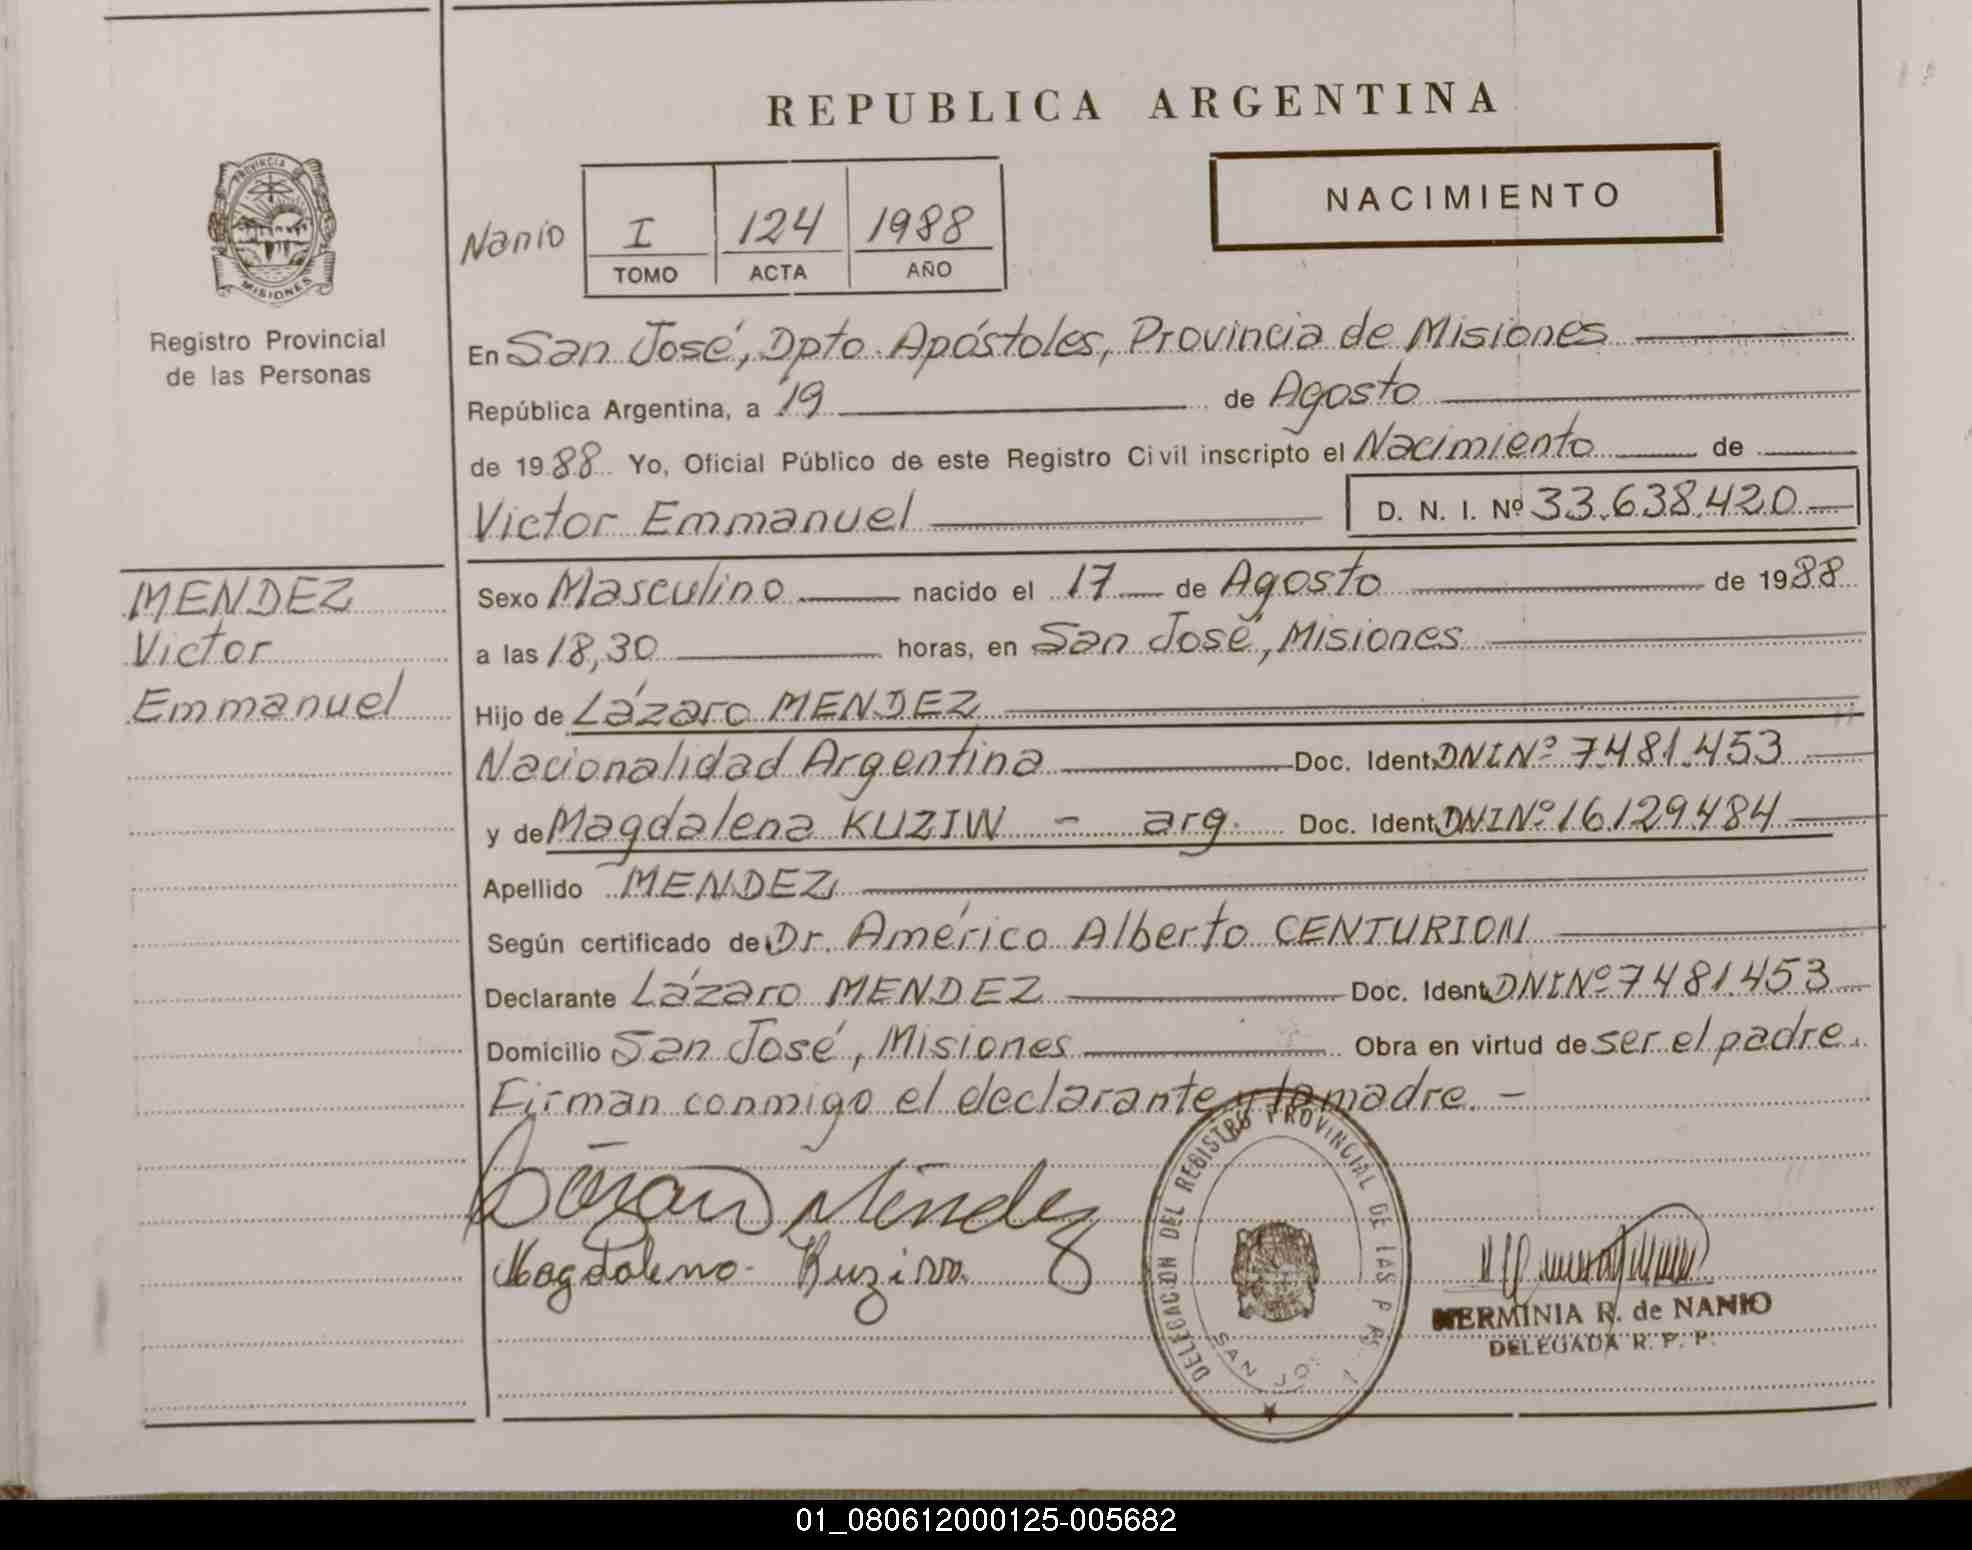 REPUBLICA ARGENTINA
PROVINCIA
MISIONES
Registro Provincial
de las Personas
Nanio
I 124 1988
TOMO ACTA AÑO
NACIMIENTO
En San José, Dpto. Apóstoles, Provincia de Misiones
República Argentina, a 19 de Agosto
de 1988 Yo, Oficial Público de este Registro Civil inscripto el Nacimiento de
Victor Emmanuel D. N. I. Nº 33.638.420
MENDEZ
Victor
Emmanuel
Sexo Masculino nacido el 17 de Agosto de 1988
a las 18,30 horas, en San José, Misiones
Hijo de Lázaro MENDEZ
Nacionalidad Argentina Doc. Ident. DNI Nº 7.481.453
y de Magdalena KUZIW - arg. Doc. Ident. DNI Nº 16.129.484
Apellido MENDEZ
Según certificado de Dr. Américo Alberto CENTURION
Declarante Lázaro MENDEZ Doc. Ident. DNI Nº 7.481.453
Domicilio San José, Misiones Obra en virtud de ser el padre.
Firman conmigo el declarante y la madre. -
Méndez
DELEGACION DEL REGISTRO PROVINCIAL DE LAS
SAN
HERMINIA R. de NANIO
DELEGADA R. P. P.
01_080612000125-005682